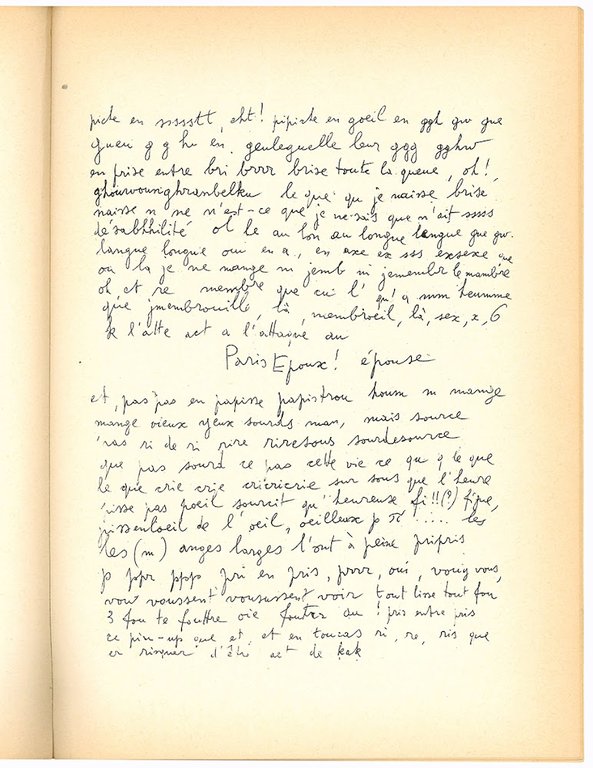 picte en ssssstt, eht! pipicte en goeil en ggh gw que
gueui g g hu en. geuleguelle leur ggg gghw
en prise entre bri brrr brise toute la queue, oh!
ghouwounighranbelku le que qu je naisse brise
naisse n ne n'est-ce que je ne sais que n'ait ssss
désabthilité ol le au lon au longue langue que gw.
langue longue oui en a, en axe ex sss exsexe que
ou la je ne mange ni jemb ni jemembr le mambre
ol et re membre que cui l' qu'a mm heumme
que jmembrouille, là, membroeil, là, sex, x, 6
k l'atte act a l'attaque au
Paris Epoux! épouse
et, pas pas en papisse papistrou housm m mange
mange vieux yeux sourds man, mais source
ras ri de ri rire riresous sourdesource
que pas sourd ce pas cette vie ce qu q le que
le que crie crie cricricrie sur sous que l'heure
isse pas poeil sourcit qu'heureuse fi!!(?) figue,
pissenloeil de l'oeil, oeilleux p π .... les
les (m) anges larges l'ont à peine pripris
p ppr pppp pri en pris, prrr, oui, vouig vous
vow voussent vousussent voir tout lisse tout fou
3 fou te fouttre oie fouter au ! pris entre pris
ce pin-up que et, et en toucas ri, re, ris que
er risquer d'être act de kak